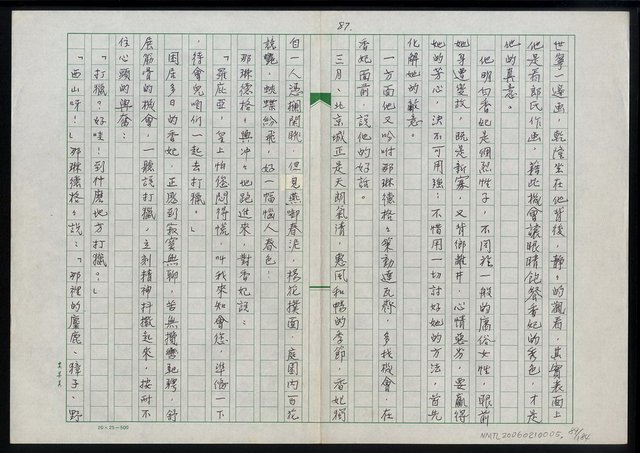 87.
世寧一邊画，乾隆坐在他背後，靜々的觀看，其實表面上
他是看郎氏作画，藉此機會讓眼睛飽餐香妃的秀色，才是
他的真意。
他明白香妃是個烈性子，不同於一般的庸俗女性，眼前
她身遭變故，既是新寡，又背鄉離井，心情惡劣，要贏得
她的芳心，決不可用強；不惜用一切討好她的方法，首先
化解她的敵意。
一方面他又吩咐那琳德格，策動達瓦齊，多找機會，在
香妃面前，說他的好話。
三月，北京城正是天朗氣清，惠風和暢的季節，香妃獨
自一人憑欄閒眺，但見燕啣春泥，楊花撲面，庭園內百花
競艷，蛺蝶紛飛，好一幅惱人春色。
那琳德格興冲々地跑進來，對香妃說：
「羅庇亞，皇上怕您悶得慌，叫我來知會您，準備一下
，待會兒咱們一起去打獵。」
困居多日的香妃，正感到寂寞無聊，苦無攬轡馳騁，舒
展筋骨的機會，一聽說打獵，立刻精神抖擻起來，按耐不
住心頭的興奮：
「打獵？好哇！到什麼地方打獵？」
「西山呀！」那琳德格々說：「那裡的麈鹿、獐子、野
20×25=500
NMTL20060210005
84/184